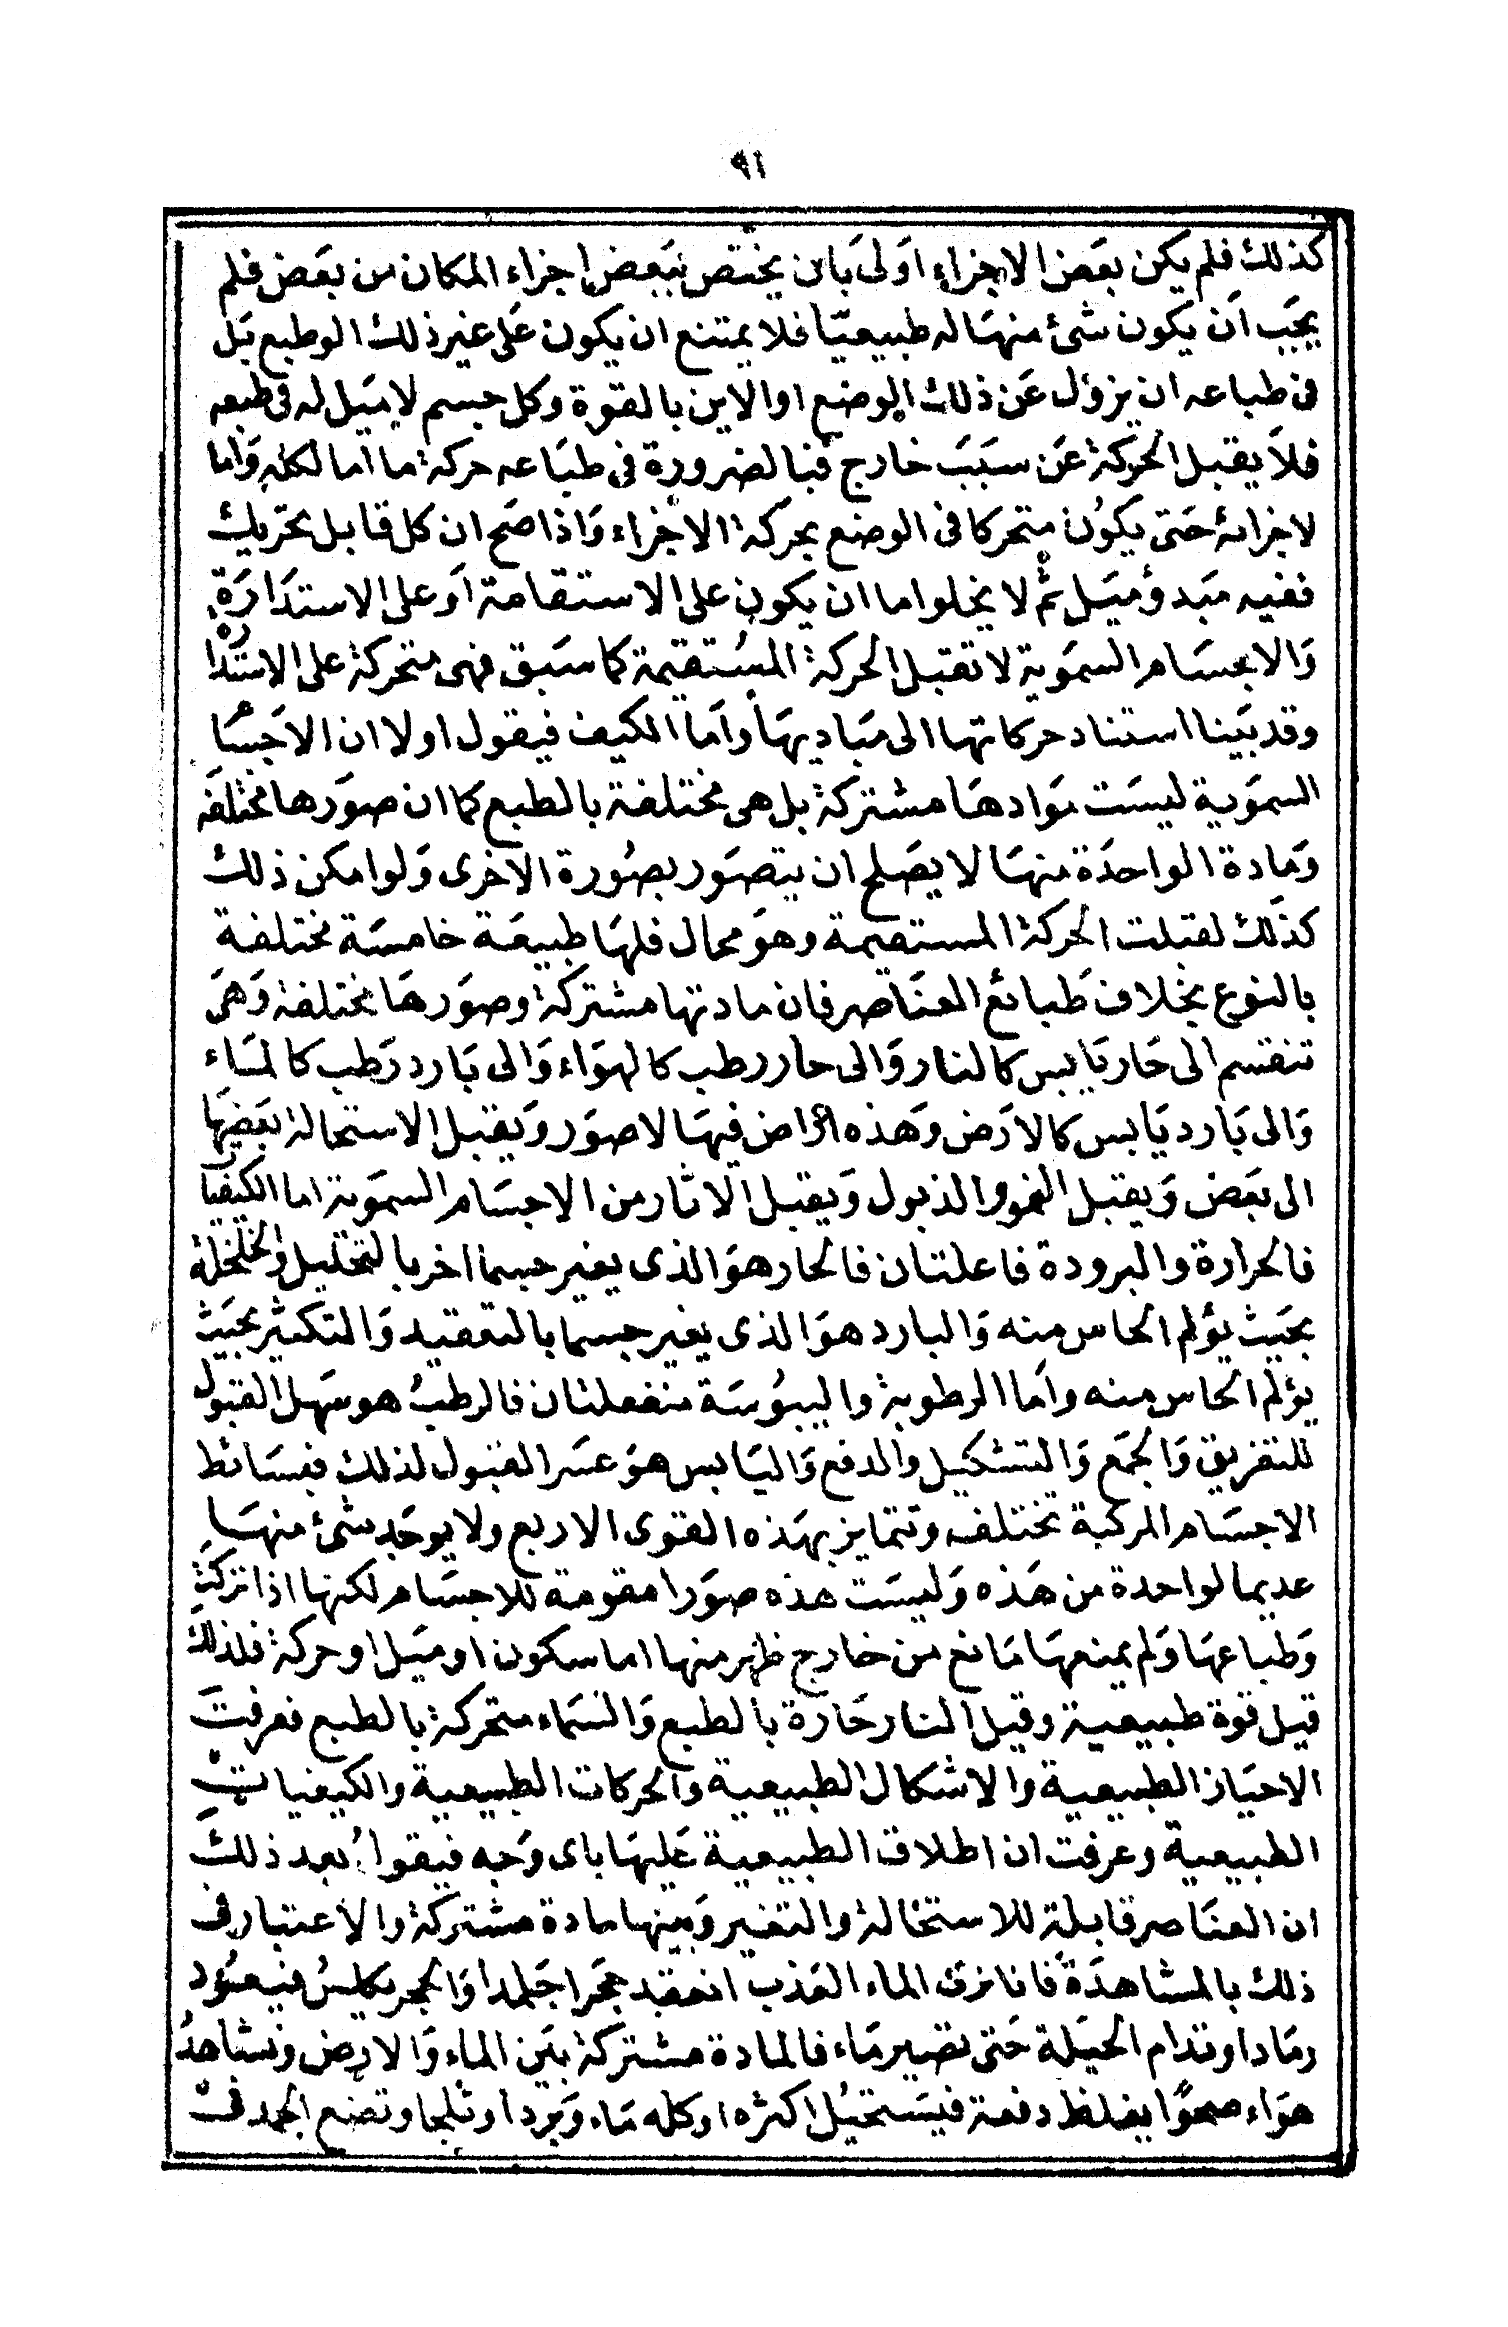 ٩١
كذلك فلم يكن بعَض الاجزاء اوَلىَ بان يختص ببَعض اجزاء المكان من بعَض فلم
يجَب اَن يكون شئ منهَا له طبيعيّا فلا يمتنع ان يكون عَلى غير ذلك الوطبع بَل
فى طباعه ان يزول عَن ذلك الوضع او الاين بالقوة وكل جسم لا ميَل له فى طبعه
فلاَ يقبل الحركة عَن سبَبَ خارج فبالضرورة فى طبَاعه حركة ما اما لكله وَاما
لاجزائه حَتى يكوُن متحركا فى الوضع بحركة الاجزاء وَاذا صَح ان كل قابل تحريك
ففيه مبَدؤ ميَل ثم لا يخلوا ما ان يكون على الاستقامة اوَ على الاستدَارَة
وَالاجسَام السموَية لا تقبل الحركة المسُتقيمة كما سبَق فهى متحركة على الاستدَارة
وقد بيَنا استناد حركاتها الى مبَاديهَا وامَا الكيف فيقول اولا ان الاجَسَام
السموَية ليسَت موَادهَا مشتركة بل هى مختلفة بالطبع كما ان صوَرها مختلفَة
وَمادة الواحدَة منهَا لا يصَلح ان يتصوَر بصُورة الاخرى وَلو امكن ذلك
كذَلك لقبلت الحركة المستقيمة وهوَ محال فلهَا طبيعَة خامسَة مختلفة
بالنوع بخلاف طَبائع العنَاصر فان مادتها مشتركة وصوَرهَا مختلفة وَهىَ
تنقسم الى حَار يَابس كالنار وَالى حار رطب كالهوَاء وَالى بَارد رَطب كالمَاء
وَالى بَارد يَابس كالارَض وَهذه اعراض فيهَا لا صوَر وَيقبل الاستحالة بعَضهَا
الى بعَض وَيقبل النمو والذبول وَيقبل الاثار من الاجسَام السموَية اما الكيفيات
فالحرارة والبرودة فاعلتان فالحار هوَ الذى يغير جسما اخر بالتحليل والخلخلة
بحَيث يؤلم الحاس منه وَالبارد هوَ الذى يغير جسما بالتعقيد وَالتكثير بحَيث
يؤلم الحاس منه وامَا الرطوبة واليبوُسَة منفعلتان فالرطبُ هو سَهل القبول
للتفريق وَالجمَع وَالتشكيل والدفع وَاليَابس هوَ عسَر القبول لذلك فبسَائط
الاجسَام المركبة تختلف وتتمايز بهَذه القوى الاربع ولا يوجَد شئ منهَا
عديما لواحدة من هَذه وَليسَت هذه صوَرا مقومة للاجسَام لكنها اذا تركتَ
وَطباعهَا وَلم يمنعهَا مَانع من خارج ظهر منها اما سكون او ميَل او حركة فلذلكَ
قيل قوة طبيعية وقيل النار حَارة بالطبع وَالسَماء متحركة بالطبع فعرفتَ
الاحيَاز الطبيعية والاشكال الطبيعية والحركات الطبيعية والكيفيات
الطبيعية وعرفت ان اطلاق الطبيعية عَليهَا باى وَجه فيقول بعد ذلكَ
ان العنَاصر قابلة للاستحالة والتغير وَبينها مادة مشتركة والاعتبار فى
ذلك بالمشاهدَة فانا نرى الماء العَذب انعقد حجَرا جَلمدا وَالحجر يكلسُ فيعوُد
رمَادا وتدام الحيَلة حَتى تصير مَاء فالمادة مشتركة بيَن الماء وَالارض ونشاهدُ
هوَاء صحوًا يغلظ دفعة فيسَتحيُل اكثره او كله مَاء وَبرَدا وثلجا وتضع الجمد فى